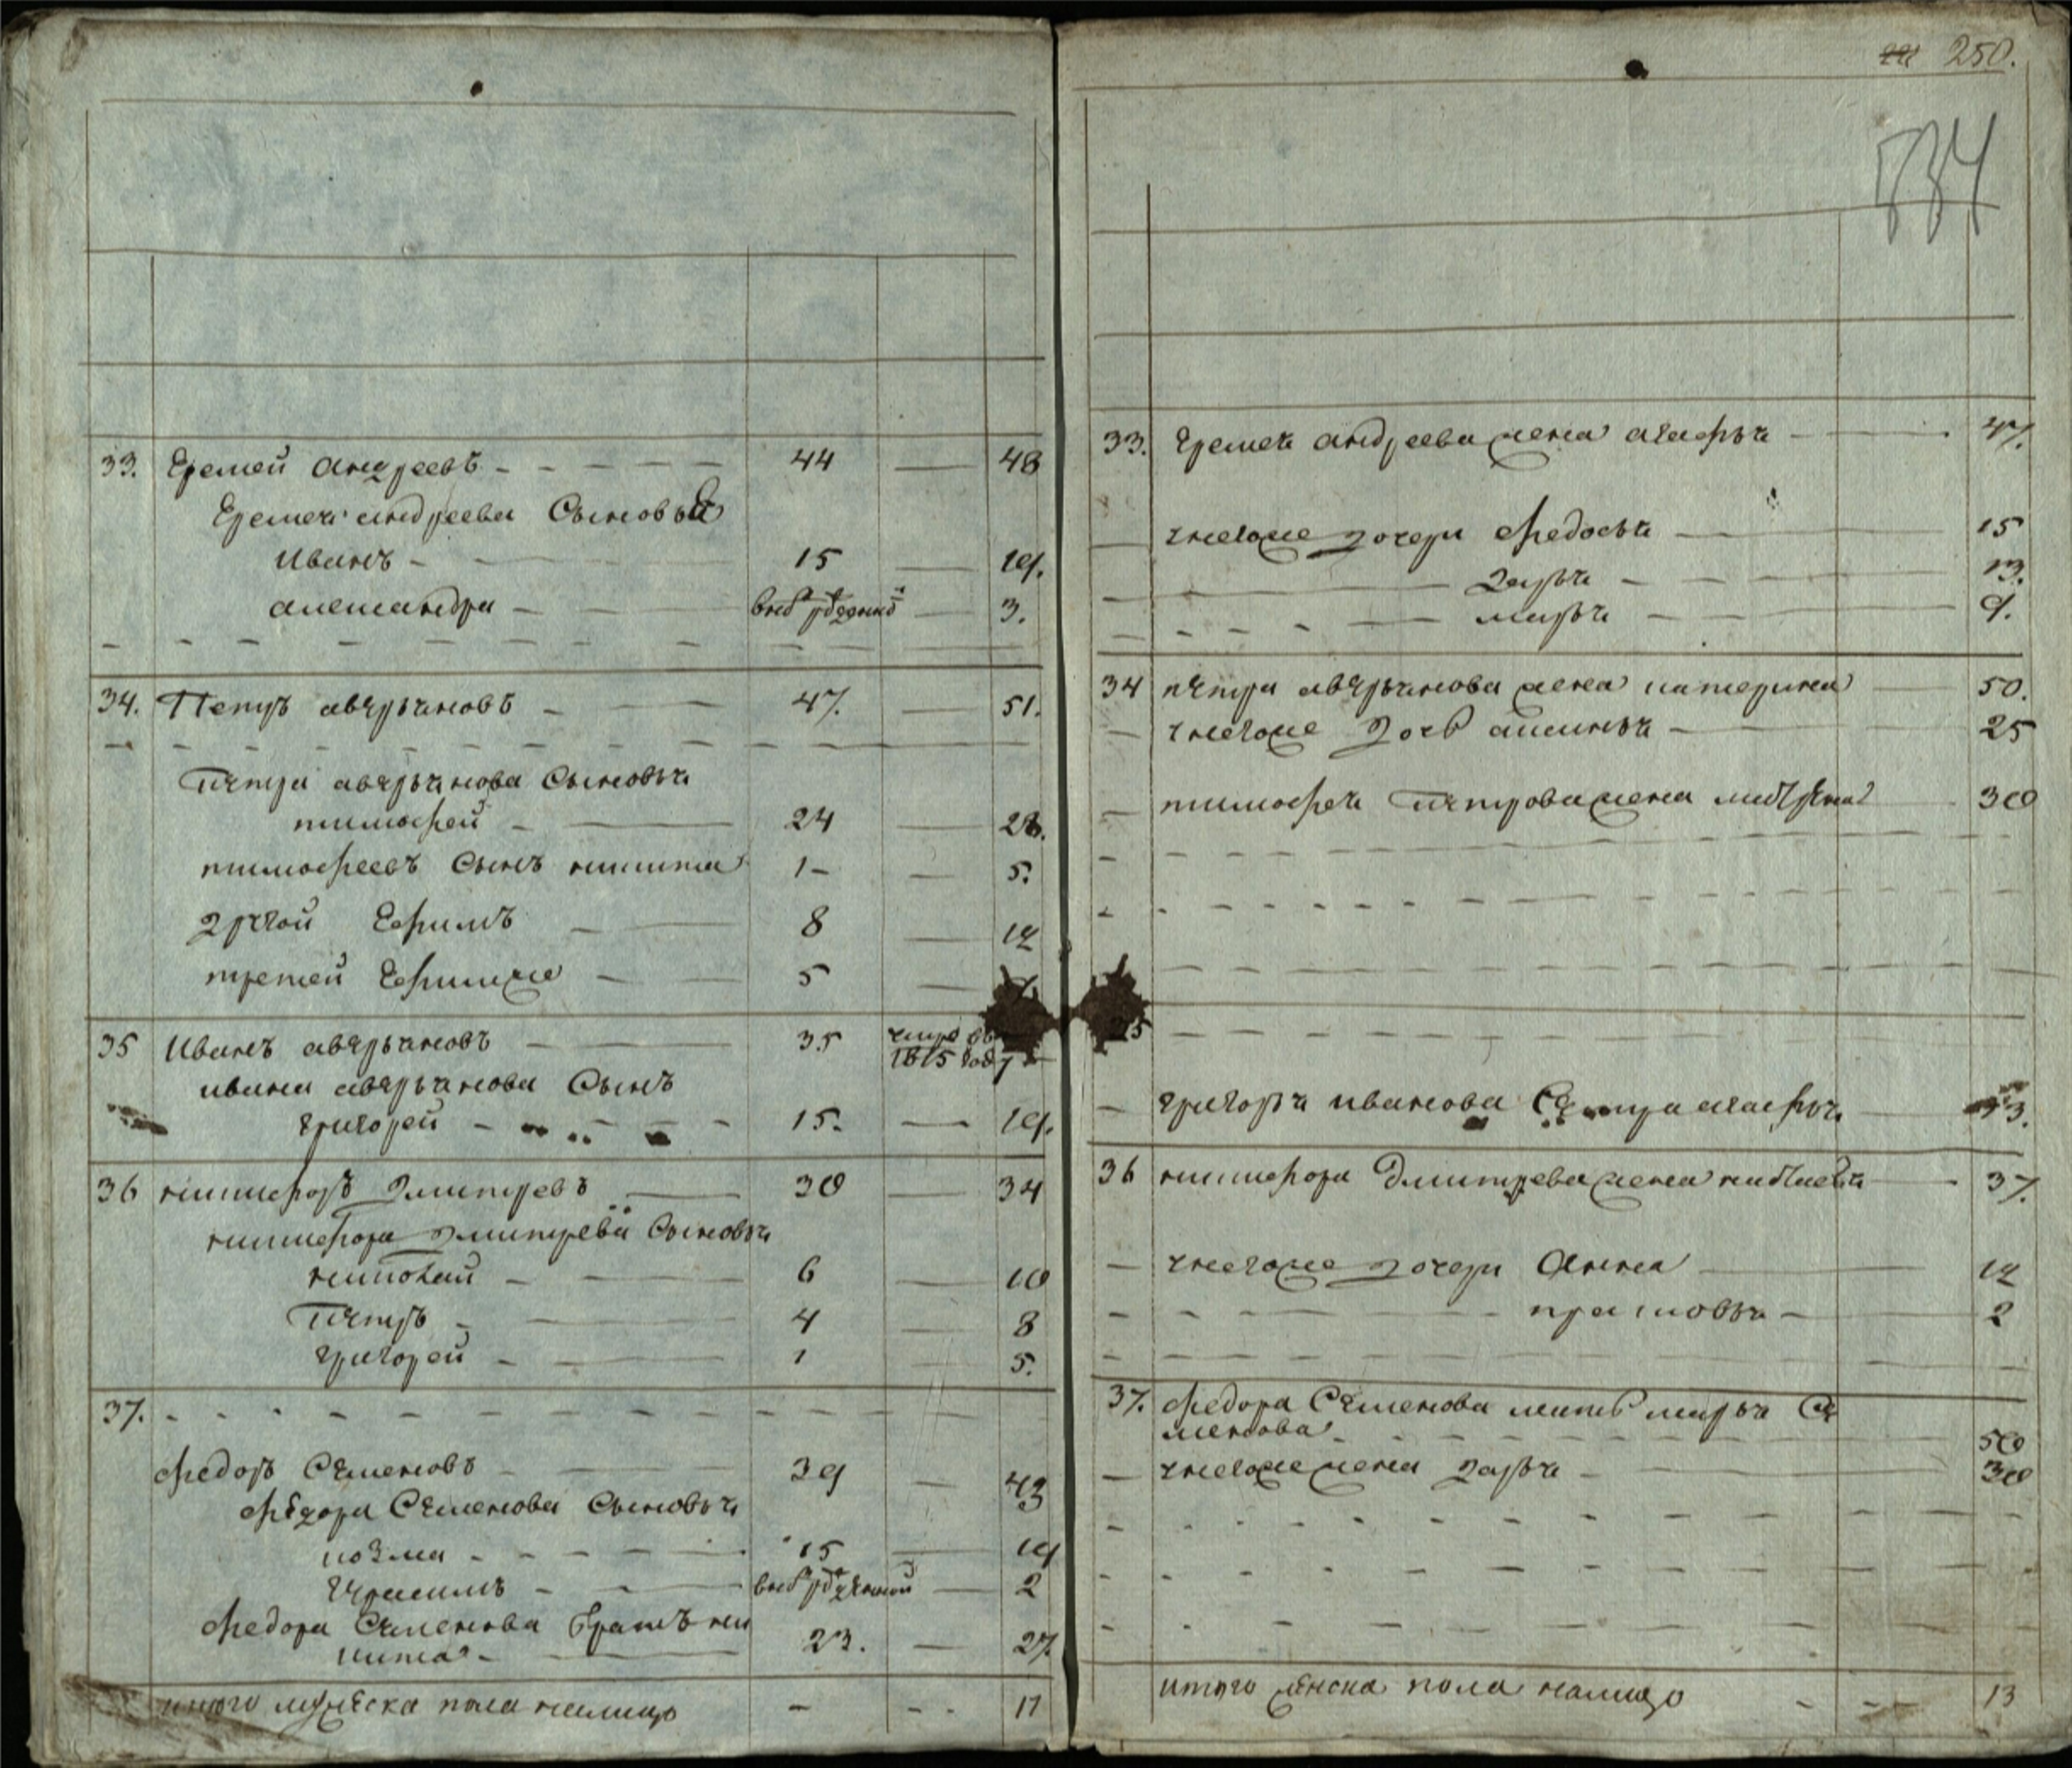 33. Еремей андреевъ 44 48
Еремея андреева Сыновья
иванъ 15 19.
александра 3.
34. Петръ аверьяновъ 47. 51.
Петра аверьянова Сыновья
тимофей 24 28.
тимофеевъ Сынъ никита 1 5.
другой Ефимъ 8 12
третей Ефимже 5
35 Иванъ аверьяновъ 35 умре въ 1815 году
ивана аверьянова Сынъ
григорей 15. 19.
36 никифоръ дмитревъ 30 34
никифора дмитрева Сыновья
10
Петръ 4 8
григорей 1 5.
37.
федоръ Семеновъ 39 43
федора Семенова Сыновья
козма 15 19
герасимъ 2
федора Семенова братъ ни
кита 23. 27.
итого мужеска пола налицо 17
250.
534
33. Еремея андреева жена агафья 47.
унегоже дочери федосья 15
дарья 13.
марья 9.
34 петра аверьянова жена катерина 50.
унегоже дочь аксинья 25
тимофея Петрова жена 30
35
григорья иванова Сестра агафья 13.
36 никифора дмитрева жена 37.
унегоже дочери Анна 12
прасковья 2
37. федора Семенова мать марья Се
менова 50
унегоже жена дарья 30
итого женска пола налицо 13